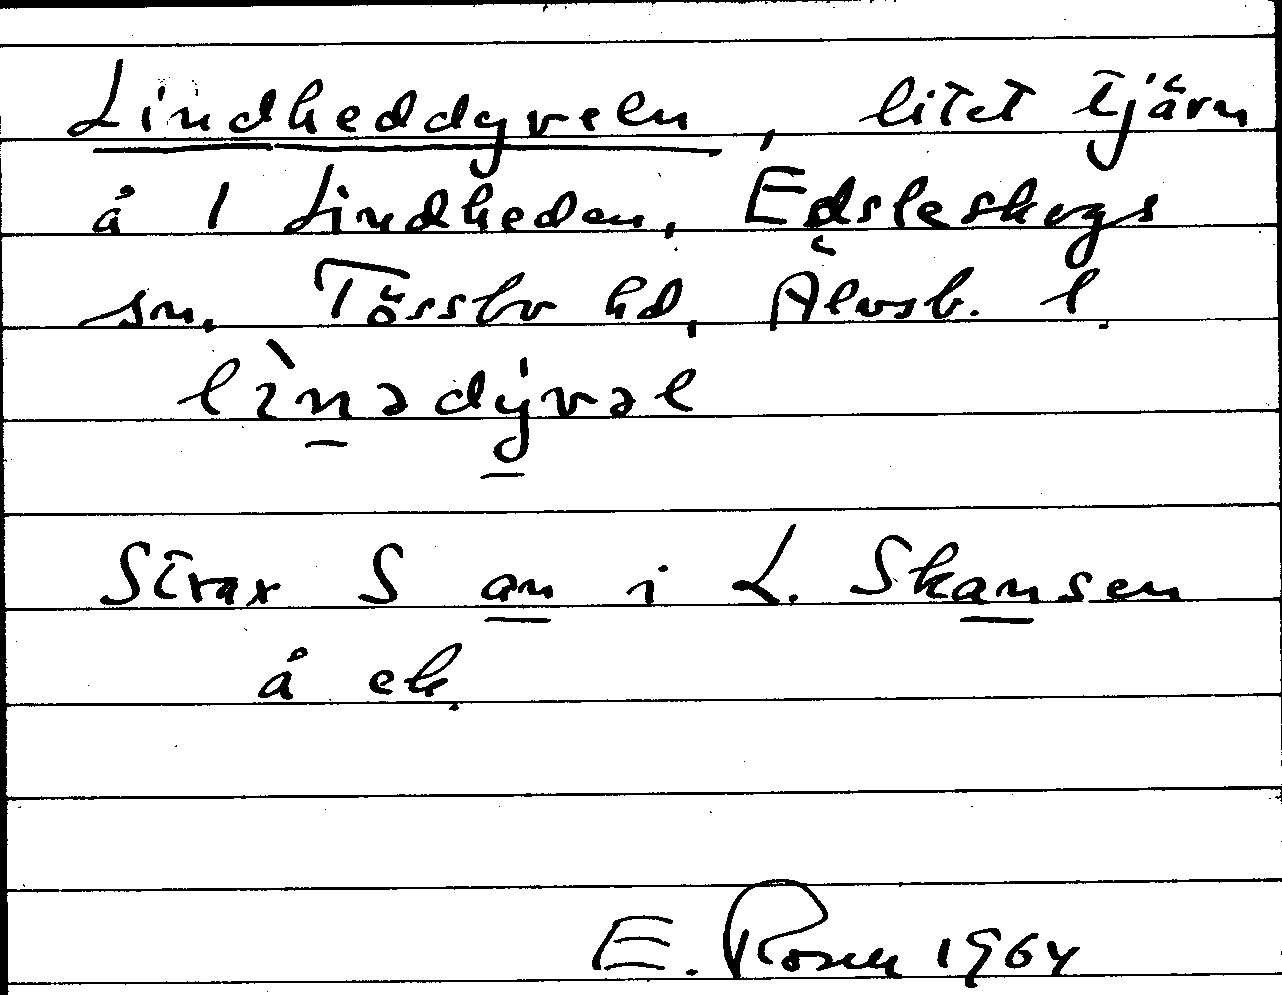 Lindheddyveln, litet tjärn
å 1 Lindheden, Edsleskogs
sn, Tössbo hd, Älvsb. l.
lìnədývəl
Strax S an i L. Skansen
å ek.
E. Rosen 1964